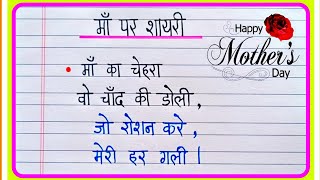 माँ पर शायरी
Happy
Mother's
Day
• माँ का चेहरा
वो चाँद की डोली,
जो रोशन करे,
मेरी हर गली।